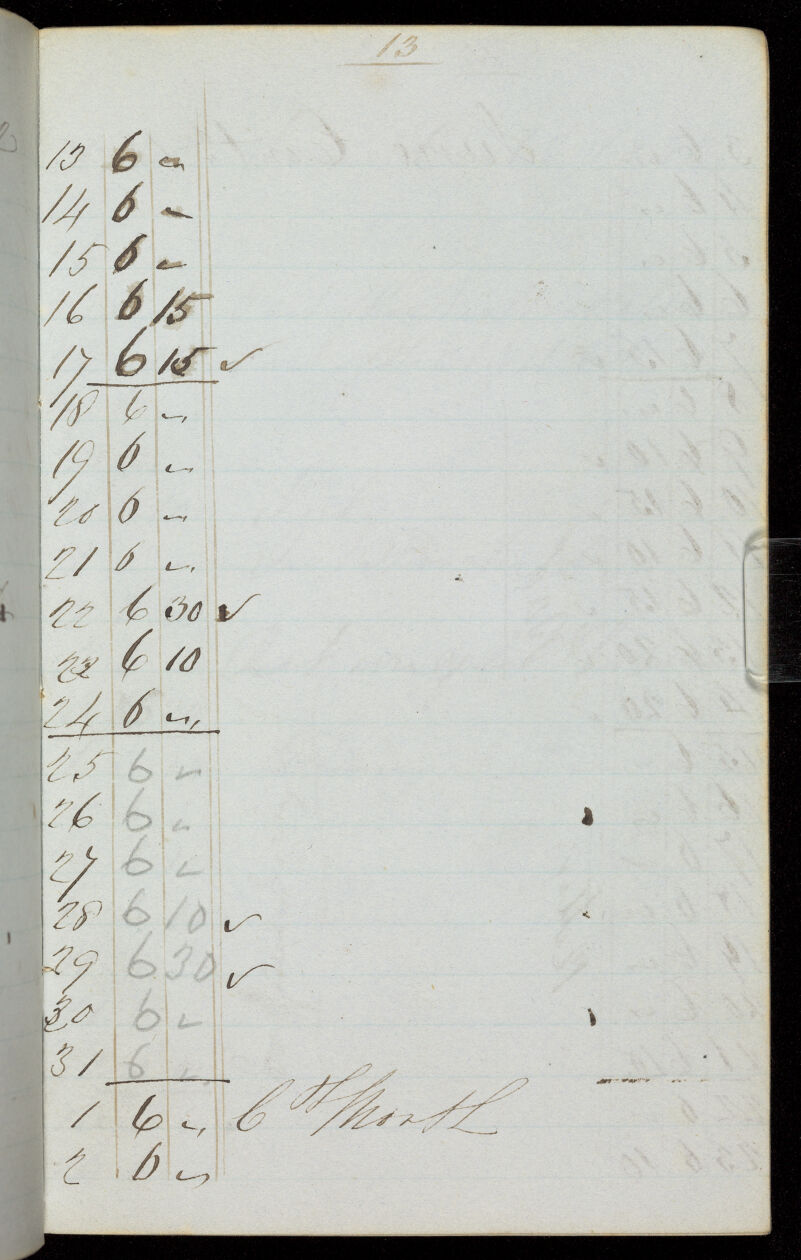 13
13 6 "
14 6 "
15 6 "
16 6 15
17 6 15 ✓
18 6 "
19 6 "
20 6 "
21 6 "
22 6 30 ✓
23 6 10
24 6 "
25 6 "
26 6 "
27 6 "
28 6 10 ✓
29 6 30 ✓
30 6 "
31 6 "
1 6 " 6th Month
2 6 "